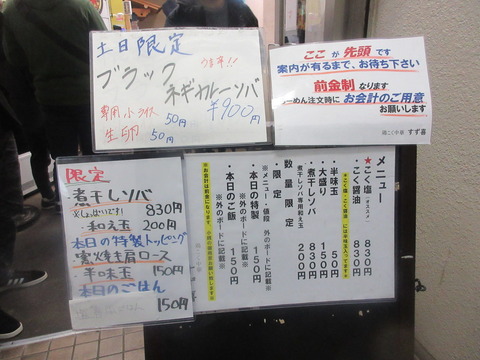 土日限定
ブラック
うま辛!!
ネギカレーソバ
¥900円
専用小ライス 50円
生卵 50円
ここが先頭です
案内が有るまで、お待ち下さい
前金制なります
らーめん注文時にお会計のご用意
お願いします
すず喜
限定
・煮干しソバ
830円
・和え玉 200円
本日の特製トッピング
・実焼き肩ロース
半味玉 150円
本日のごはん
150円
メニュー
★こく塩 830
・こく醤油 830
・半味玉 50
・大盛り 150円
・煮干しソバ 830円
煮干しソバ専用和え玉 200円
数量限定
・限定
※メニュー・値段 外のボードに記載※
・本日の特製 150円
※外のボードに記載※
・本日のご飯 150円
※外のボードに記載※